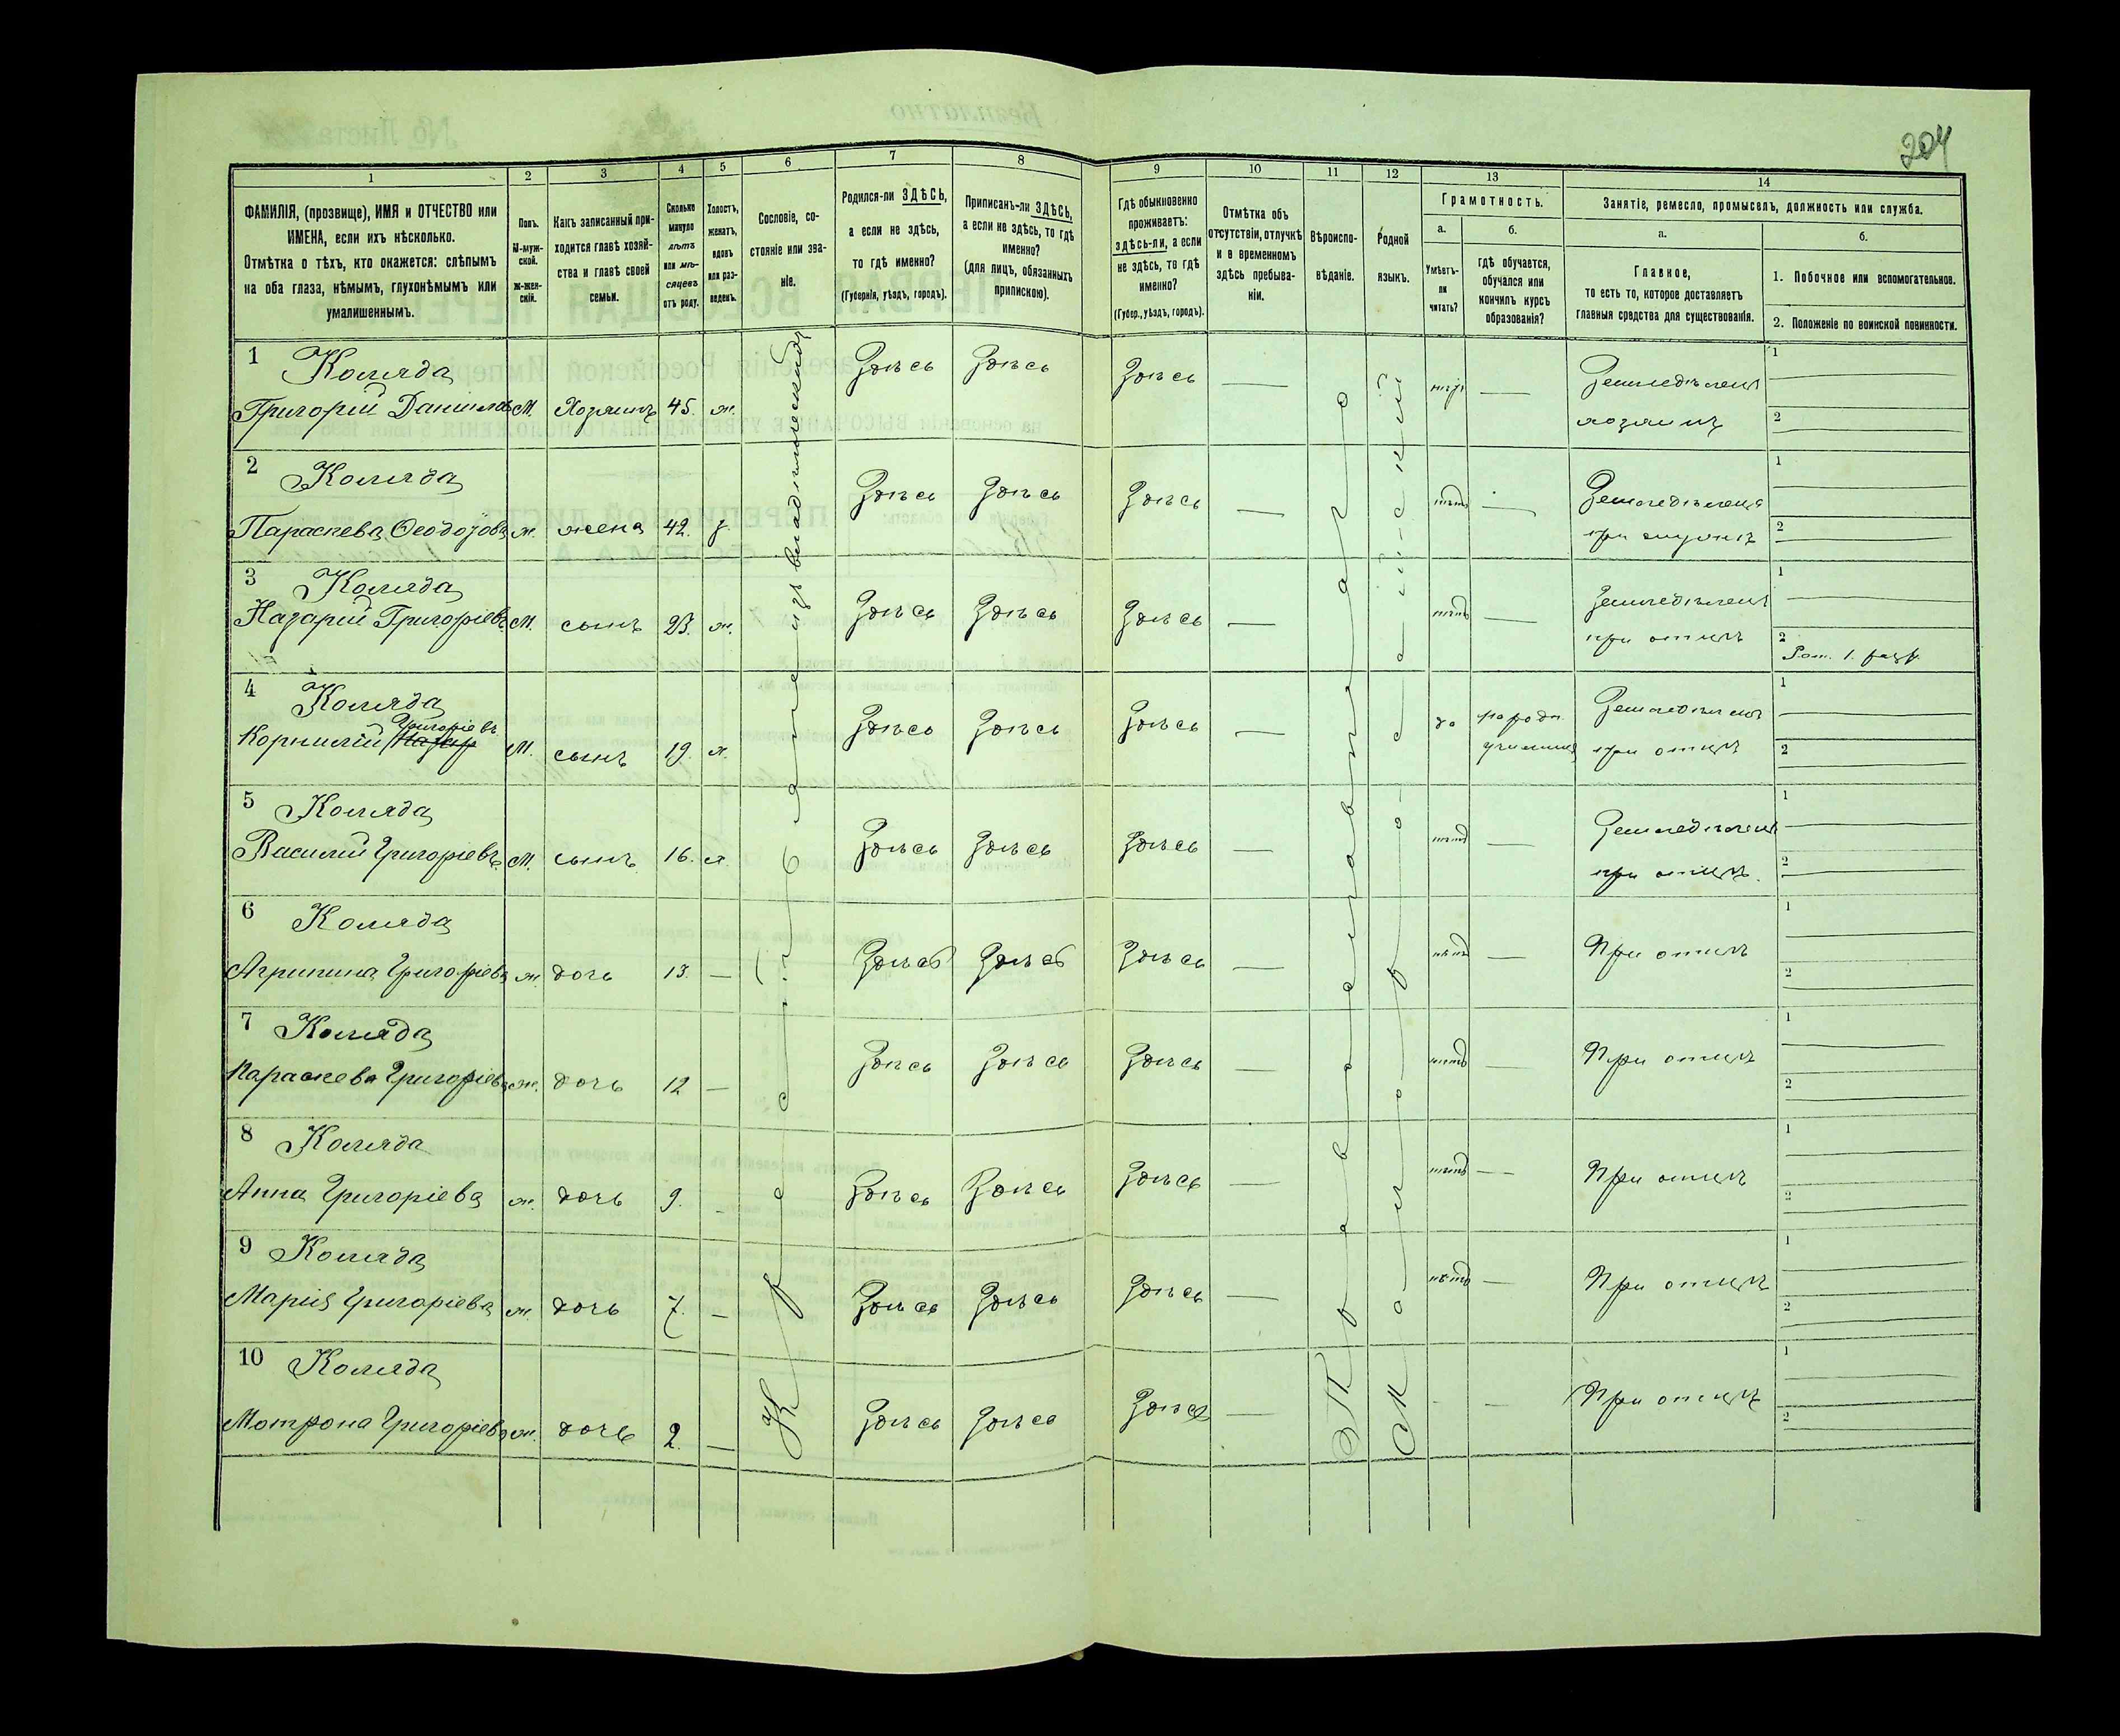 204
1 2 3 4 5 6 7 8 9 10 11 12 13 14
ФАМИЛІЯ, (прозвище), ИМЯ и ОТЧЕСТВО или
ИМЕНА, если ихъ нѣсколько.
Отмѣтка о тѣхъ, кто окажется: слѣпымъ
на оба глаза, нѣмымъ, глухонѣмымъ или
умалишеннымъ.
Полъ.
М-муж-
ской.
ж-жен-
скій.
Какъ записанный при-
ходится главѣ хозяй-
ства и главѣ своей
семьи.
Сколько
минуло
лѣтъ
или мѣ-
сяцевъ
отъ роду.
Холостъ,
женатъ,
вдовъ
или раз-
веденъ.
Сословіе, со-
стояніе или зва-
ніе.
Родился-ли ЗДѢСЬ,
а если не здѣсь,
то гдѣ именно?
(Губернія, уѣздъ, городъ).
Приписанъ-ли ЗДѢСЬ,
а если не здѣсь, то гдѣ
именно?
(для лицъ, обязанныхъ
припискою).
Гдѣ обыкновенно
проживаетъ:
здѣсь-ли, а если
не здѣсь, то гдѣ
именно?
(Губер., уѣздъ, городъ).
Отмѣтка объ
отсутствіи, отлучкѣ
и о временномъ
здѣсь пребыва-
ніи.
Вѣроиспо-
вѣданіе.
Родной
языкъ.
Грамотность.
а.
Умѣетъ-
ли
читать?
б.
гдѣ обучается,
обучался или
кончилъ курсъ
образованія?
Занятіе, ремесло, промыселъ, должность или служба.
а.
Главное,
то есть то, которое доставляетъ
главныя средства для существованія.
б.
1. Побочное или вспомогательное.
2. Положеніе по воинской повинности.
Крестьянинъ изъ владѣльческихъ
Православнаго
Малороссійскій
1 Коляда
Григорій Данилов М. Хозяинъ 45. ж. Здѣсь Здѣсь Здѣсь — нѣтъ — Земледѣлецъ
хозяинъ
1
2
2 Коляда
Параскева Ѳеодоровa ж. жена 42. з. Здѣсь Здѣсь Здѣсь — нѣтъ — Земледѣлецъ
при мужѣ
1
2
3 Коляда
Назарій Григоріевъ М. сынъ 23. ж. Здѣсь Здѣсь Здѣсь — нѣтъ — Земледѣлецъ
при отцѣ
1
2
Рат. 1. разр.
4 Коляда
Корнилій Григоріевъ М. сынъ 19. х. Здѣсь Здѣсь Здѣсь — да народн.
училищѣ
Земледѣлецъ
при отцѣ
1
2
5 Коляда
Василій Григоріевъ М. сынъ 16. х. Здѣсь Здѣсь Здѣсь — нѣтъ — Земледѣлецъ
при отцѣ
1
2
6 Коляда
Агрипина Григоріева ж. дочь 13. — Здѣсь Здѣсь Здѣсь — нѣтъ — При отцѣ
1
2
7 Коляда
Параскева Григоріева ж. дочь 12 — Здѣсь Здѣсь Здѣсь — нѣтъ — При отцѣ
1
2
8 Коляда
Анна Григоріева ж. дочь 9. - Здѣсь Здѣсь Здѣсь — нѣтъ — При отцѣ
1
2
9 Коляда
Марія Григоріева ж. дочь 7. — Здѣсь Здѣсь Здѣсь — нѣтъ — При отцѣ
1
2
10 Коляда
Мотрона Григоріева ж. дочь 2. — Здѣсь Здѣсь Здѣсь — - - При отцѣ
1
2